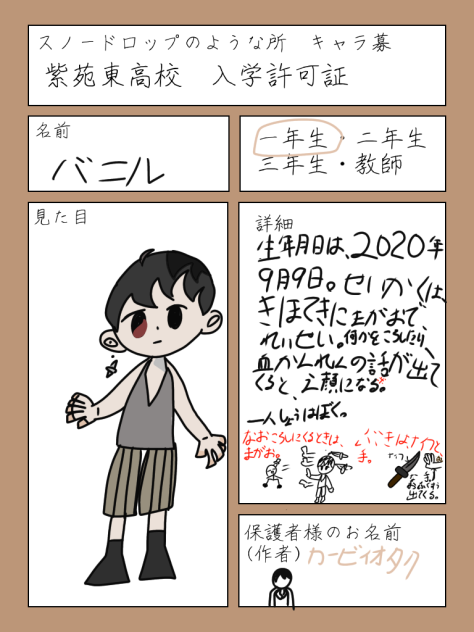 スノードロップのような所 キャラ募
紫苑東高校 入学許可証
名前
バニル
一年生・二年生
三年生・教師
見た目
詳細
生年月日は、2020年
9月9日。せいかくは、
きほてきにまがおで、
れいせい。何かをころしたり、
血かんれんの話が出て
くると、え顔になる。
一人しょうはぼく。
なおころしにくるときは、
まがお。
ぶきはナイフと、
手。
ナイフ↓
手↓
出てくる。
保護者様のお名前
(作者) カービィオタク